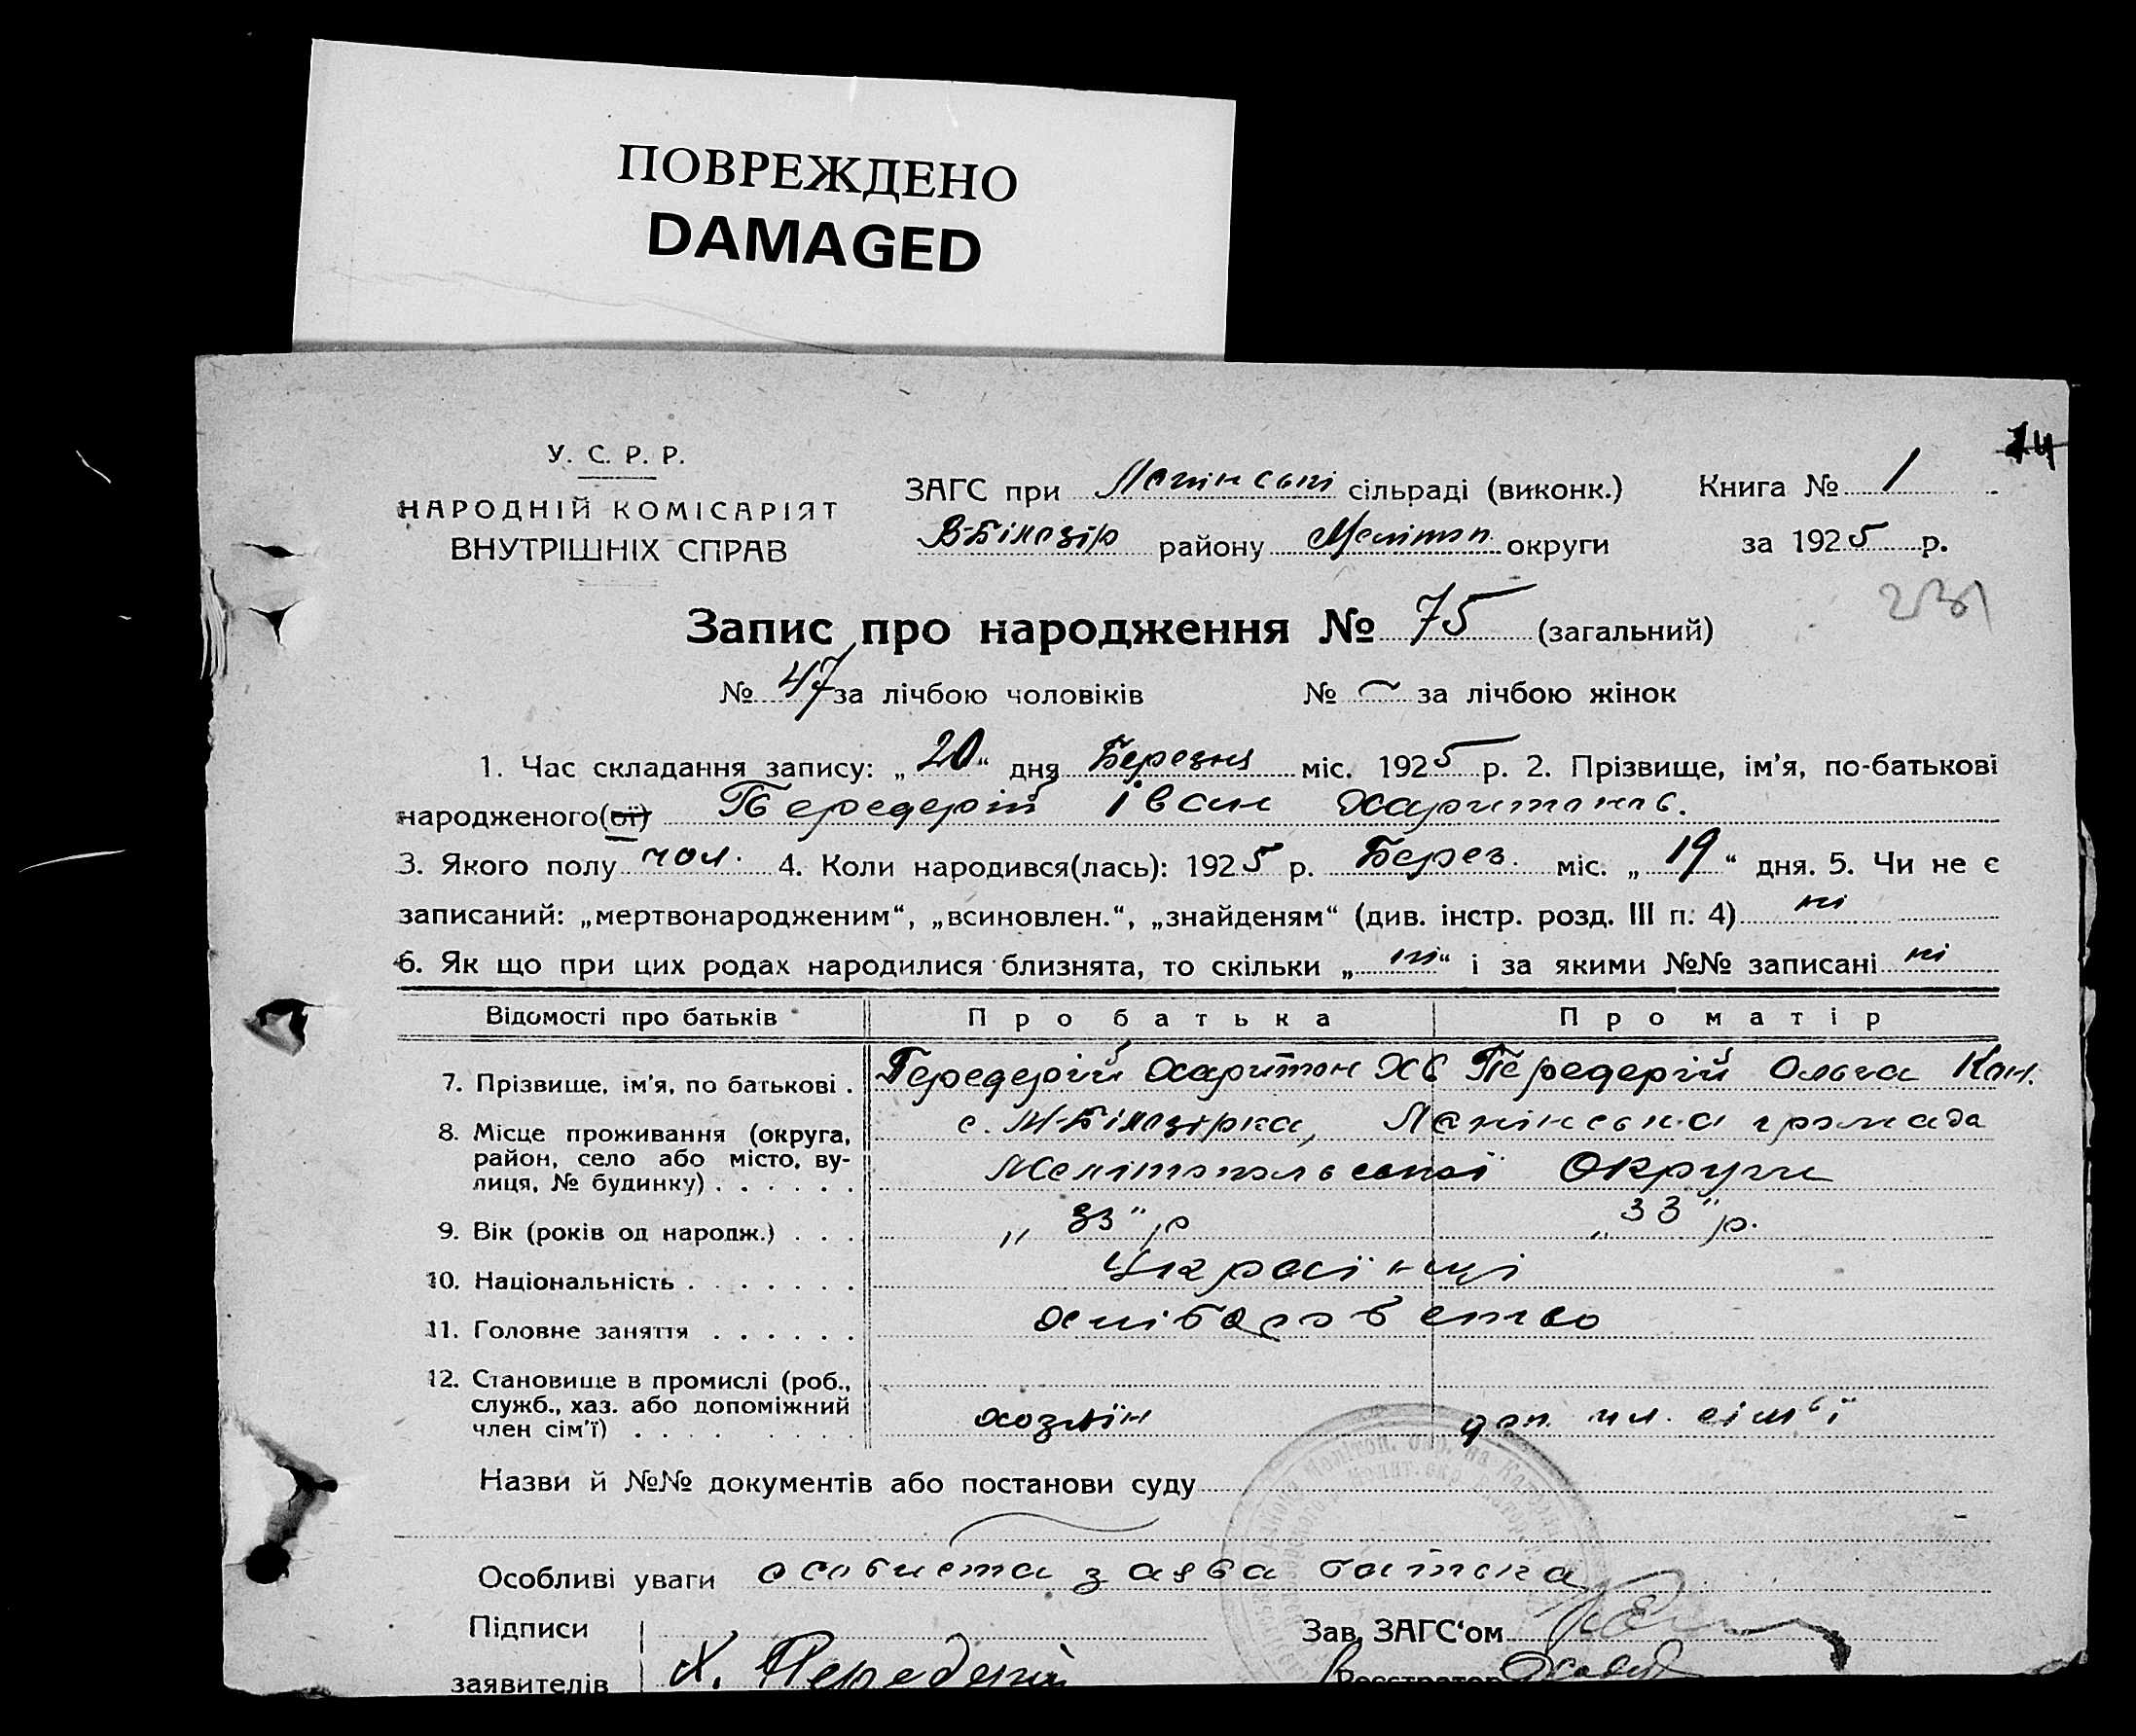 ПОВРЕЖДЕНО
DAMAGED
14
У. С. Р. Р.
НАРОДНІЙ КОМІСАРІЯТ
ВНУТРІШНІХ СПРАВ
ЗАГС при сільраді (виконк.) Книга № 1
В-Білозір району Мелітоп. округи за 1925 р.
231
Запис про народження № 75 (загальний)
№ 47 за лічбою чоловіків № — за лічбою жінок
1. Час складання запису: „20“ дня Березня міс. 1925 р. 2. Прізвище, ім’я, по-батькові
народженого(ої) Передерій Іван Харитонов.
3. Якого полу чол. 4. Коли народився(лась): 1925 р. Берез. міс. „19“ дня. 5. Чи не є
записаний: „мертвонародженим“, „всиновлен.“, „знайденям“ (див. інстр. розд. III п. 4) ні
6. Як що при цих родах народилися близнята, то скільки „ні“ і за якими №№ записані ні
Відомості про батьків Про батька Про матір
7. Прізвище, ім’я, по батькові . Передерій Харитон Передерій Ольга Кон.
8. Місце проживання (округа, с. М-Білозірка, громада
район, село або місто, ву- Мелітопольської Округи
лиця, № будинку) . . . . . .
9. Вік (років од народж.) . . . „33“ р „33“ р.
10. Національність . . . . . . . Українці
11. Головне заняття . . . . . . хліборобство
12. Становище в промислі (роб.,
служб., хаз. або допоміжний
член сім’ї) . . . . . . . . хозяїн доп. чл. сім’ї
Назви й №№ документів або постанови суду
Особливі уваги особиста заява батька
Підписи Зав. ЗАГС‘ом
заявителів Х. Передерій Реєстратор